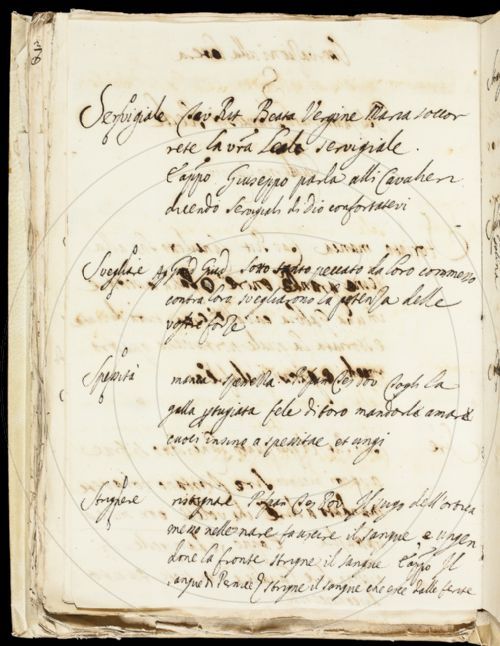 Servigiale Beata Vergine Maria soccor
rete la vra leale servigiale.
Zappo Giuseppo parla alli Cavalieri
dicendo servigiali di dio confortatevi
Svegliare Giud sotto tanto peccato da loro commesso
contra loro svegliarono la potenza delle
vostre forze
Spessità manca
galla fele di toro mandorle amare
cuoci insino a spessitae et ungi
Strignere Il sugo dell'ortica
messo nelle nare il sangue e ungen
done la fronte strigne il sangue Zappo Il
sangue strigne il sangue che esce dalle ferite